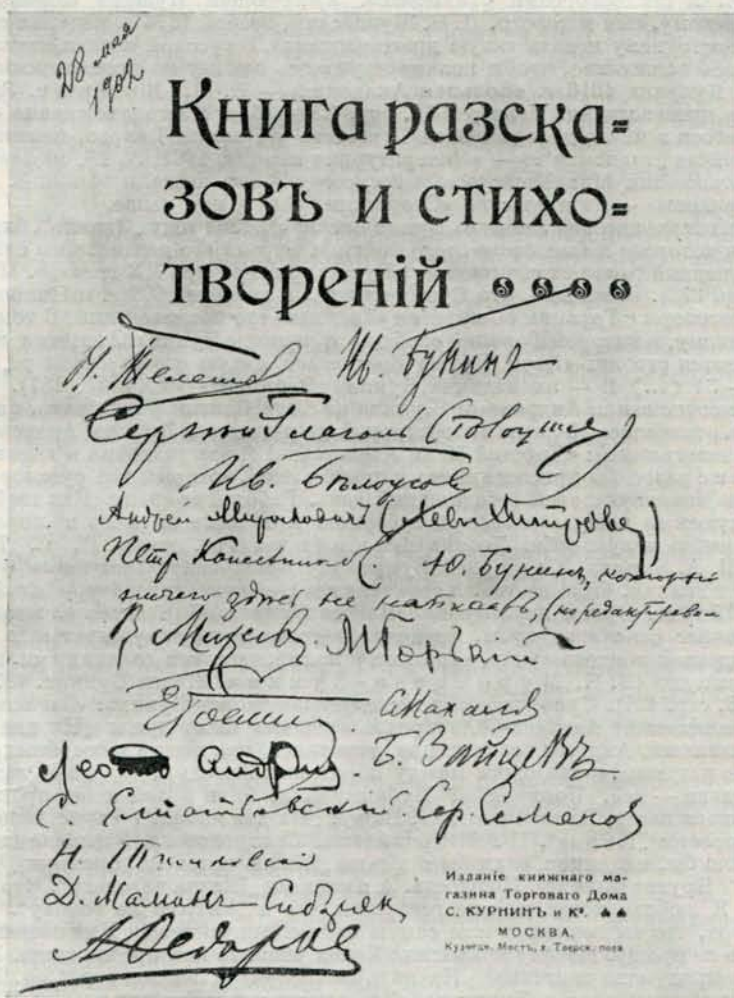 28 мая
1902
Книга разска=
зовъ и стихо=
твореній
Н. Телешов Ив. Бунинъ
Сергѣй Глаголь (
Ив. Бѣлоусов
Андрей Мирославичъ
Петр Ю. Бунинъ, который
ничего здѣсь не написавъ, (но редактировал
В Михеев. М Горькій
С Махалов
Леонид Андреев. Б. Зайцевъ
С. Елпатьевский. Сер. Семенов
Н. Тимковский
Д. Маминъ Сибиряк
А Федоров
Изданіе книжнаго ма-
газина Торговаго Дома
С. КУРНИНЪ и Кº.
МОСКВА.
Кузнецк. Мостъ, д. Тверск. подв.